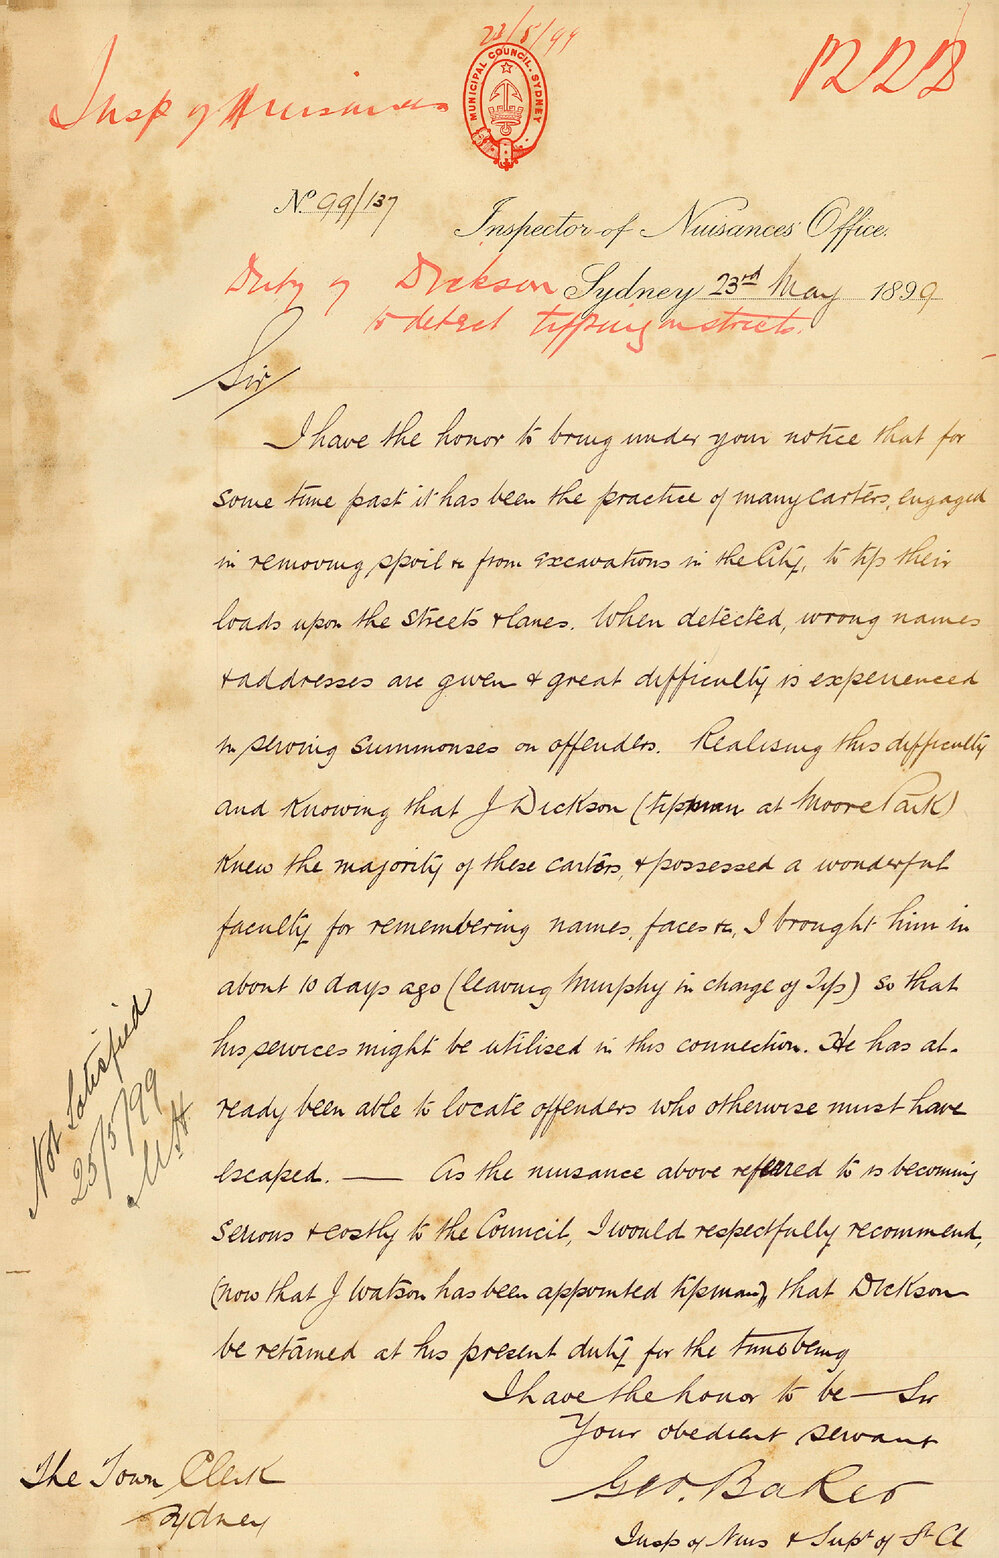 23/5/99
Insp of Nuisances
MUNICIPAL COUNCIL. SYDNEY
No 99/137
Inspector of Nuisances Office.
Duty of Dickson
Sydney 23rd May 1899
to detect tipping in streets.
Sir
I have the honor to bring under your notice that for
some time past it has been the practice of many carters, engaged
in removing spoil &c from excavations in the City, to tip their
loads upon the streets & lanes. When detected, wrong names
& addresses are given & great difficulty is experienced
in serving summonses on offenders. Realising this difficulty
and knowing that J Dickson (tipman at Moore Park)
knew the majority of these carters, & possessed a wonderful
faculty for remembering names, faces &c, I brought him in
about 10 days ago (leaving Murphy in charge of Tip) so that
his services might be utilised in this connection. He has al-
ready been able to locate offenders who otherwise must have
escaped. — As the nuisance above referred to is becoming
serious & costly to the Council, I would respectfully recommend,
(now that J Watson has been appointed tipman), that Dickson
be retained at his present duty for the time being
I have the honor to be — Sir
Your obedient servant
Geo. Baker
Insp of Nuis & Supt of St Cl
The Town Clerk
Sydney
Not Satisfied
25/5/99